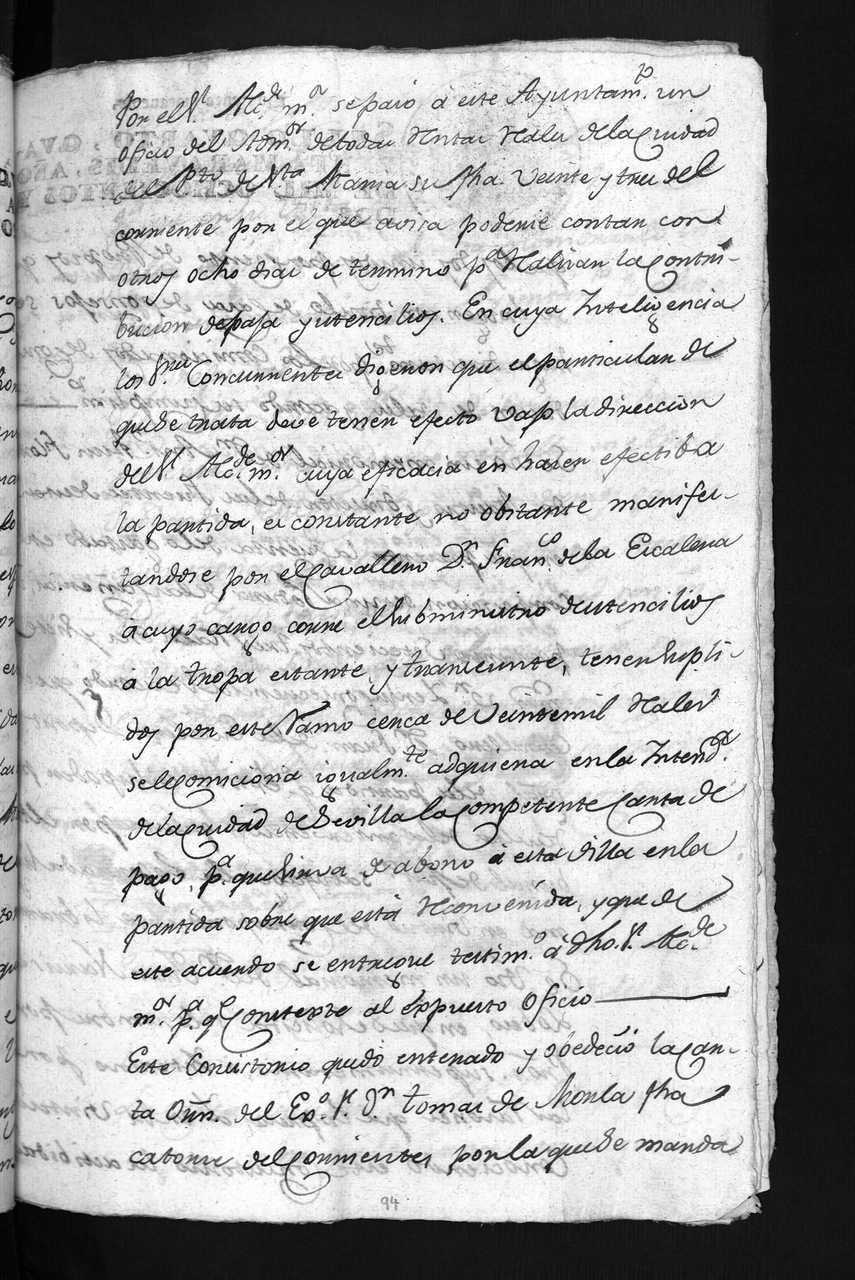 Por el Sr. Alcde. mor. se paso á este Ayuntamto. un
Oficio del Admor. de todas Rentas Rales de la Ciudad
del Pto. de Sta Maria su fha. Veinte y tres del
corriente por el que avisa poderse contar con
otros ocho dias de termino pa. Realisar la contri-
bucion de paja y utencilios. En cuya Inteligencia
los Sres. Concurrentes digeron que el particular de
que se trata deve tener efecto vajo la direccion
del Sr. Alcde. mor. cuya eficacia en haser efectiba
la partida, es constante no obstante manifes-
tandose por el Cavallero Dn. Franco. de la Escalera
á cuyo cargo corre el subministro de utencilios
á la tropa estante, y transeunte, tener supli-
dos por este Ramo cerca de Veinte mil Reales
se le comiciona igualmte. adquiera en la Intenda.
de la Ciudad de Sevilla la competente Carta de
pago, pa. que sirva de abono á esta Villa en la
partida sobre que está Reconvenida, y que de
este acuerdo se entregue testimo. á dho. Sr. Alcde.
mor. pa. qe. Conteste al Expuesto Oficio
Este Concistorio quedó enterado y obedeció la Car-
ta Orn. del Exo. Sr. Dn. tomas de Morla fha
catorse del corriente, por la que se manda
94